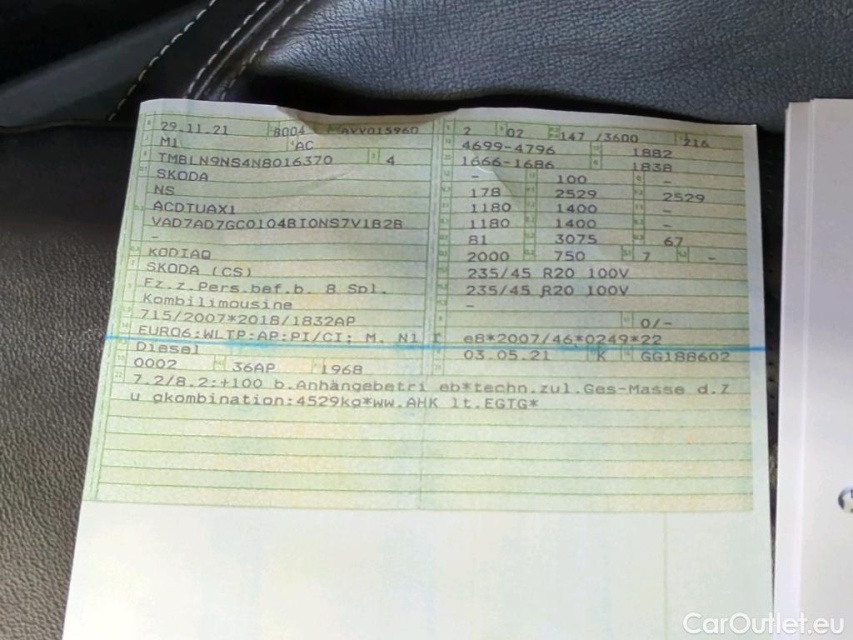 29.11.21 8004 AVV015960 2 02 147 /3600 216
M1 AC 4699-4796 1882
TMBLN9NS4N8016370 4 1666-1686 1838
SKODA - 100 - -
NS 178 2529 2529
ACDTUAX1 1180 1400 -
VAD7AD7GC0104BIONS7V1B2B 1180 1400 -
- 81 3075 67
KODIAQ 2000 750 7 -
SKODA (CS) 235/45 R20 100V
Fz.z.Pers.bef.b. 8 Spl. 235/45 R20 100V
Kombilimousine -
715/2007*2018/1832AP 0/-
EURO6;WLTP;AP;PI/CI; M, N1 I e8*2007/46*0249*22
Diesel 03.05.21 K GG188602
0002 36AP 1968
7.2/8.2:+100 b.Anhängebetri eb*techn.zul.Ges-Masse d.Z
u gkombination:4529kg*ww.AHK lt.EGTG*
CarOutlet.eu